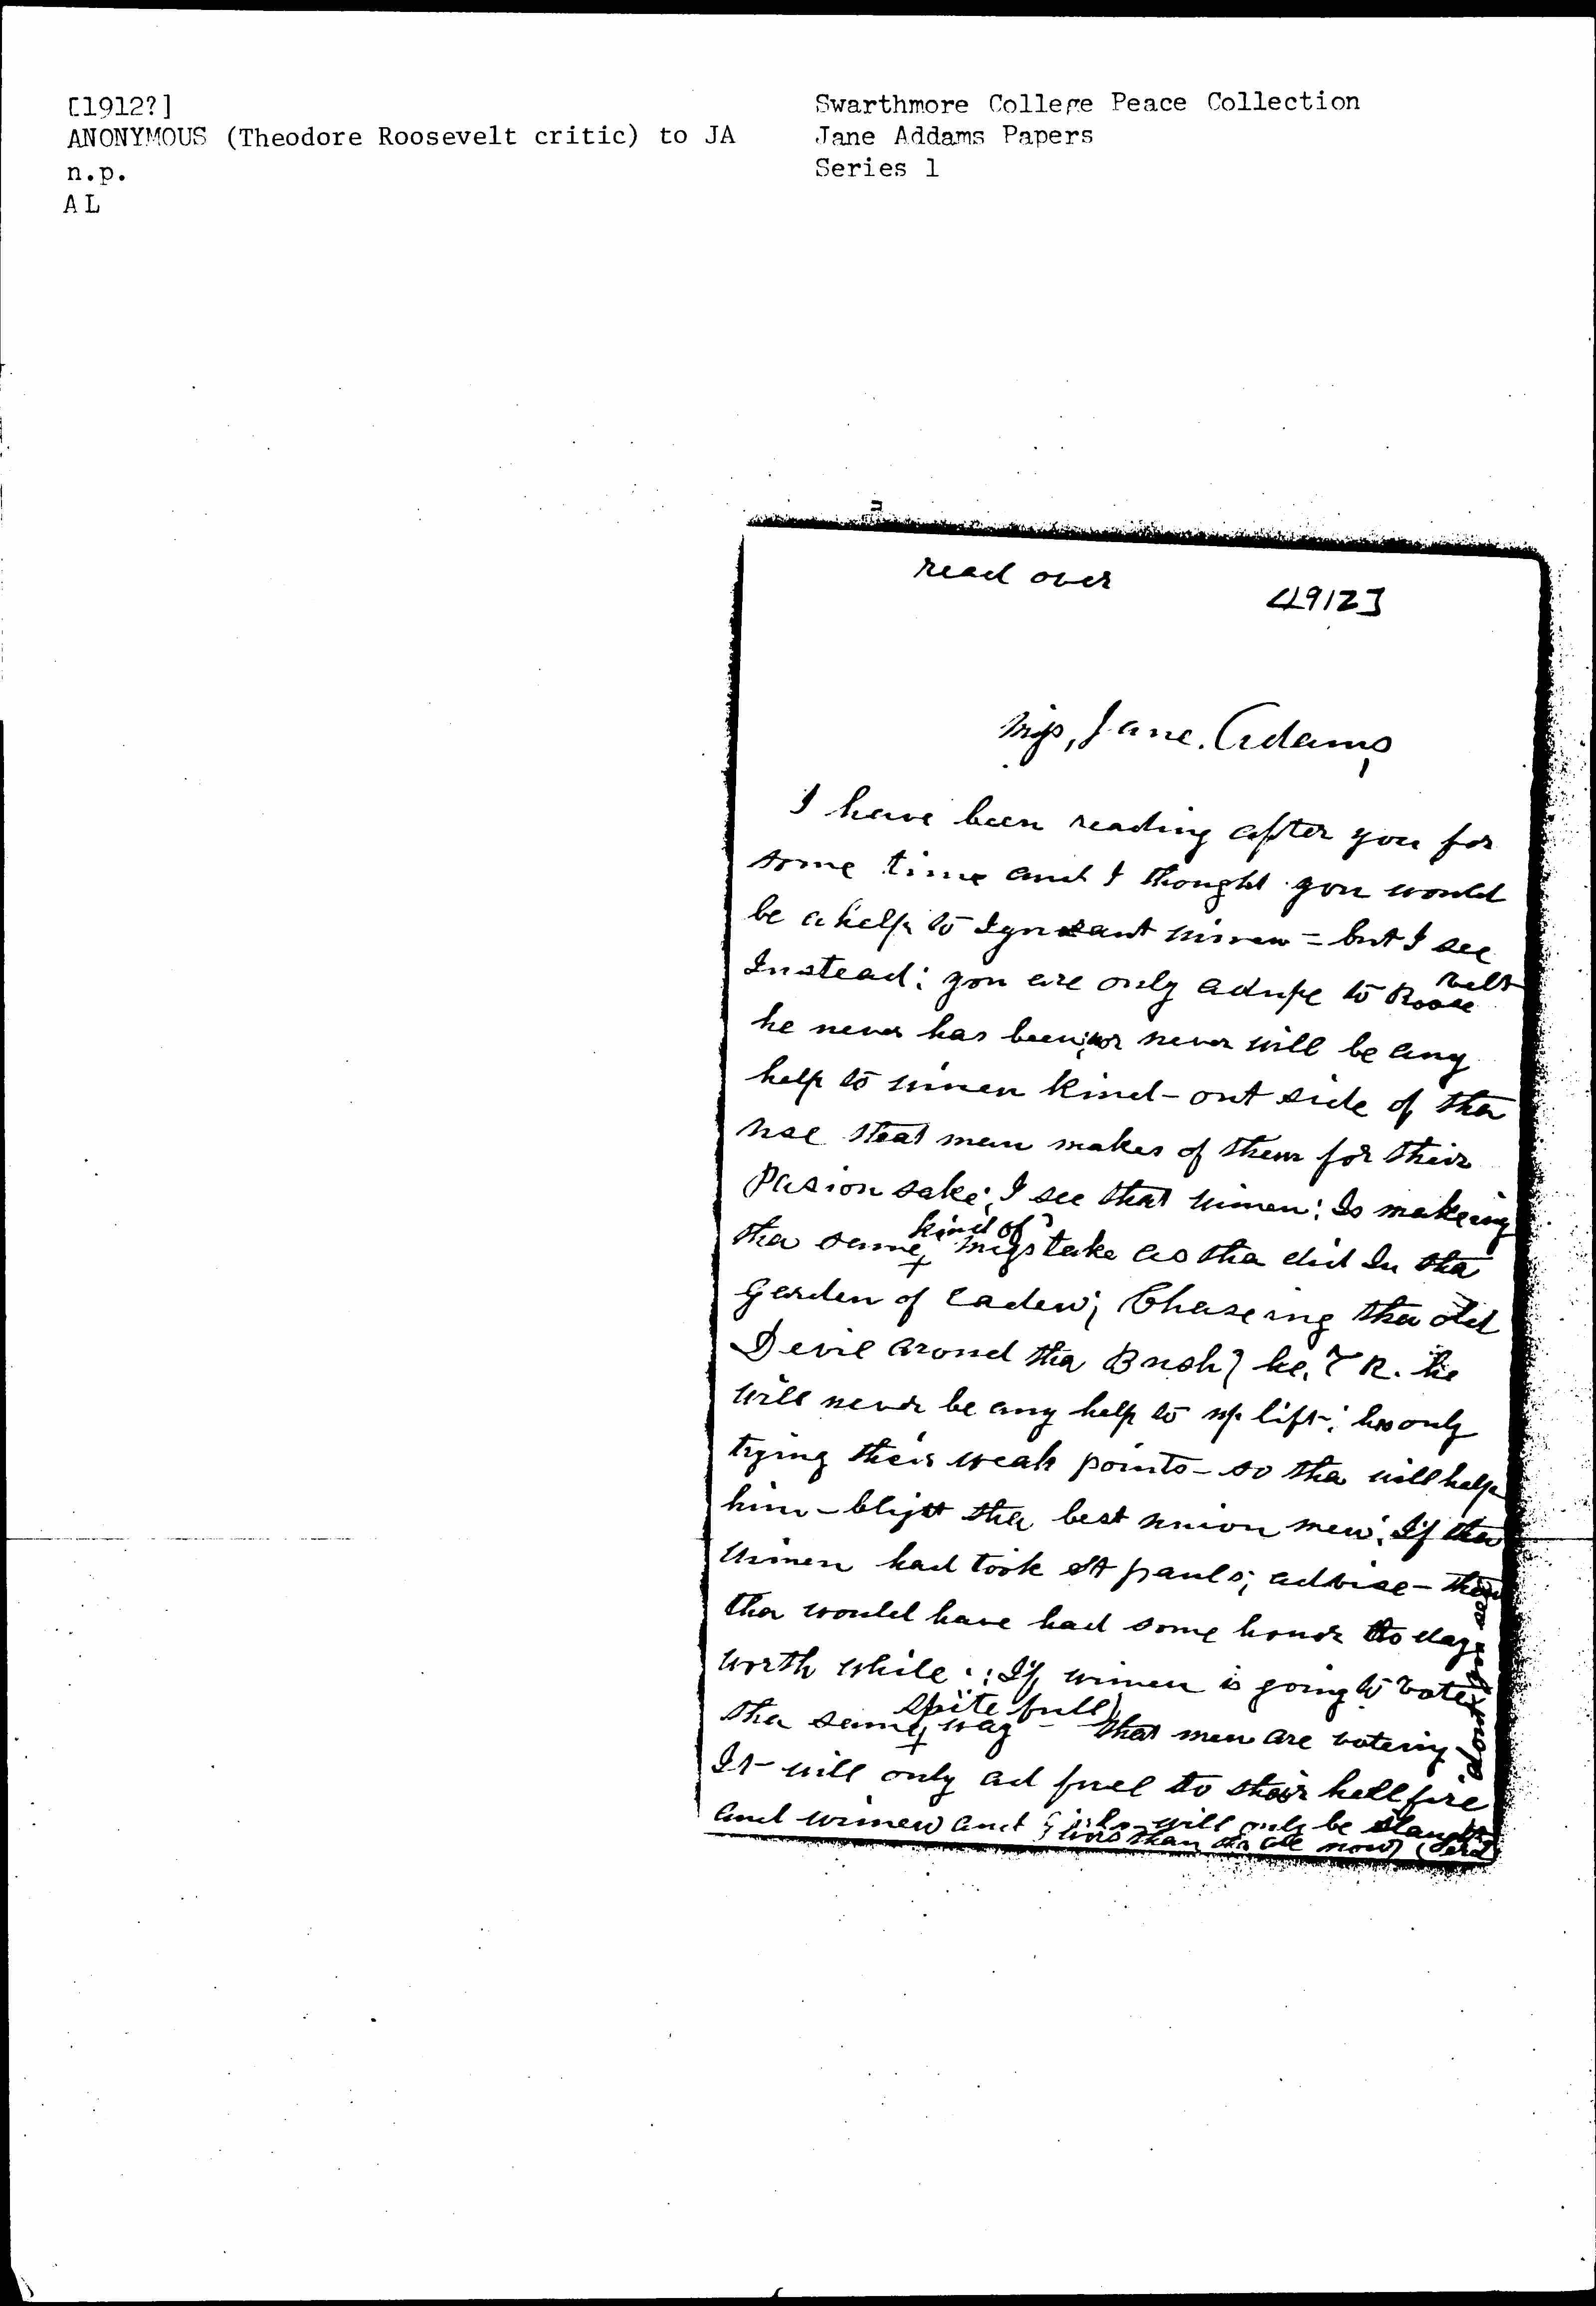 [1912?]
ANONYMOUS (Theodore Roosevelt critic) to JA
n.p.
AL
Swarthmore College Peace Collection
Jane Addams Papers
Series 1
read over
[1912]
Miss, Jane. Adams,
I have been reading after you for
some time and I thought you would
be a help to Ignorant wimen = but I see
Instead: you are only adupe to Roosevelt
he never has been: nor never will be any
help to wimen kind - out side of tha
use that men makes of them for their
Pasion sake; I see that wimen: Is makeing
tha same kind of misstake as tha did In tha
garden of eaden; Chaseing tha old
Devil arond tha Bush) he, T R. he
will never be any help to up lift-; hes only
trying their weak points - so tha will help
him - blight tha best union men: If tha
wimen had took st pauls; advise - then
tha would have had some honor to day
worth while :: If wimen is going to vote
tha same spite full way - that men are voteing
It will only ad fuel to their hell fire
and wimen and girls will only be slaughtered
wors than tha are now)
dont you see